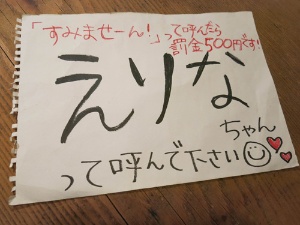 「すみませーん！」って呼んだら
罰金500円です！
えりな
ちゃん
って呼んで下さい